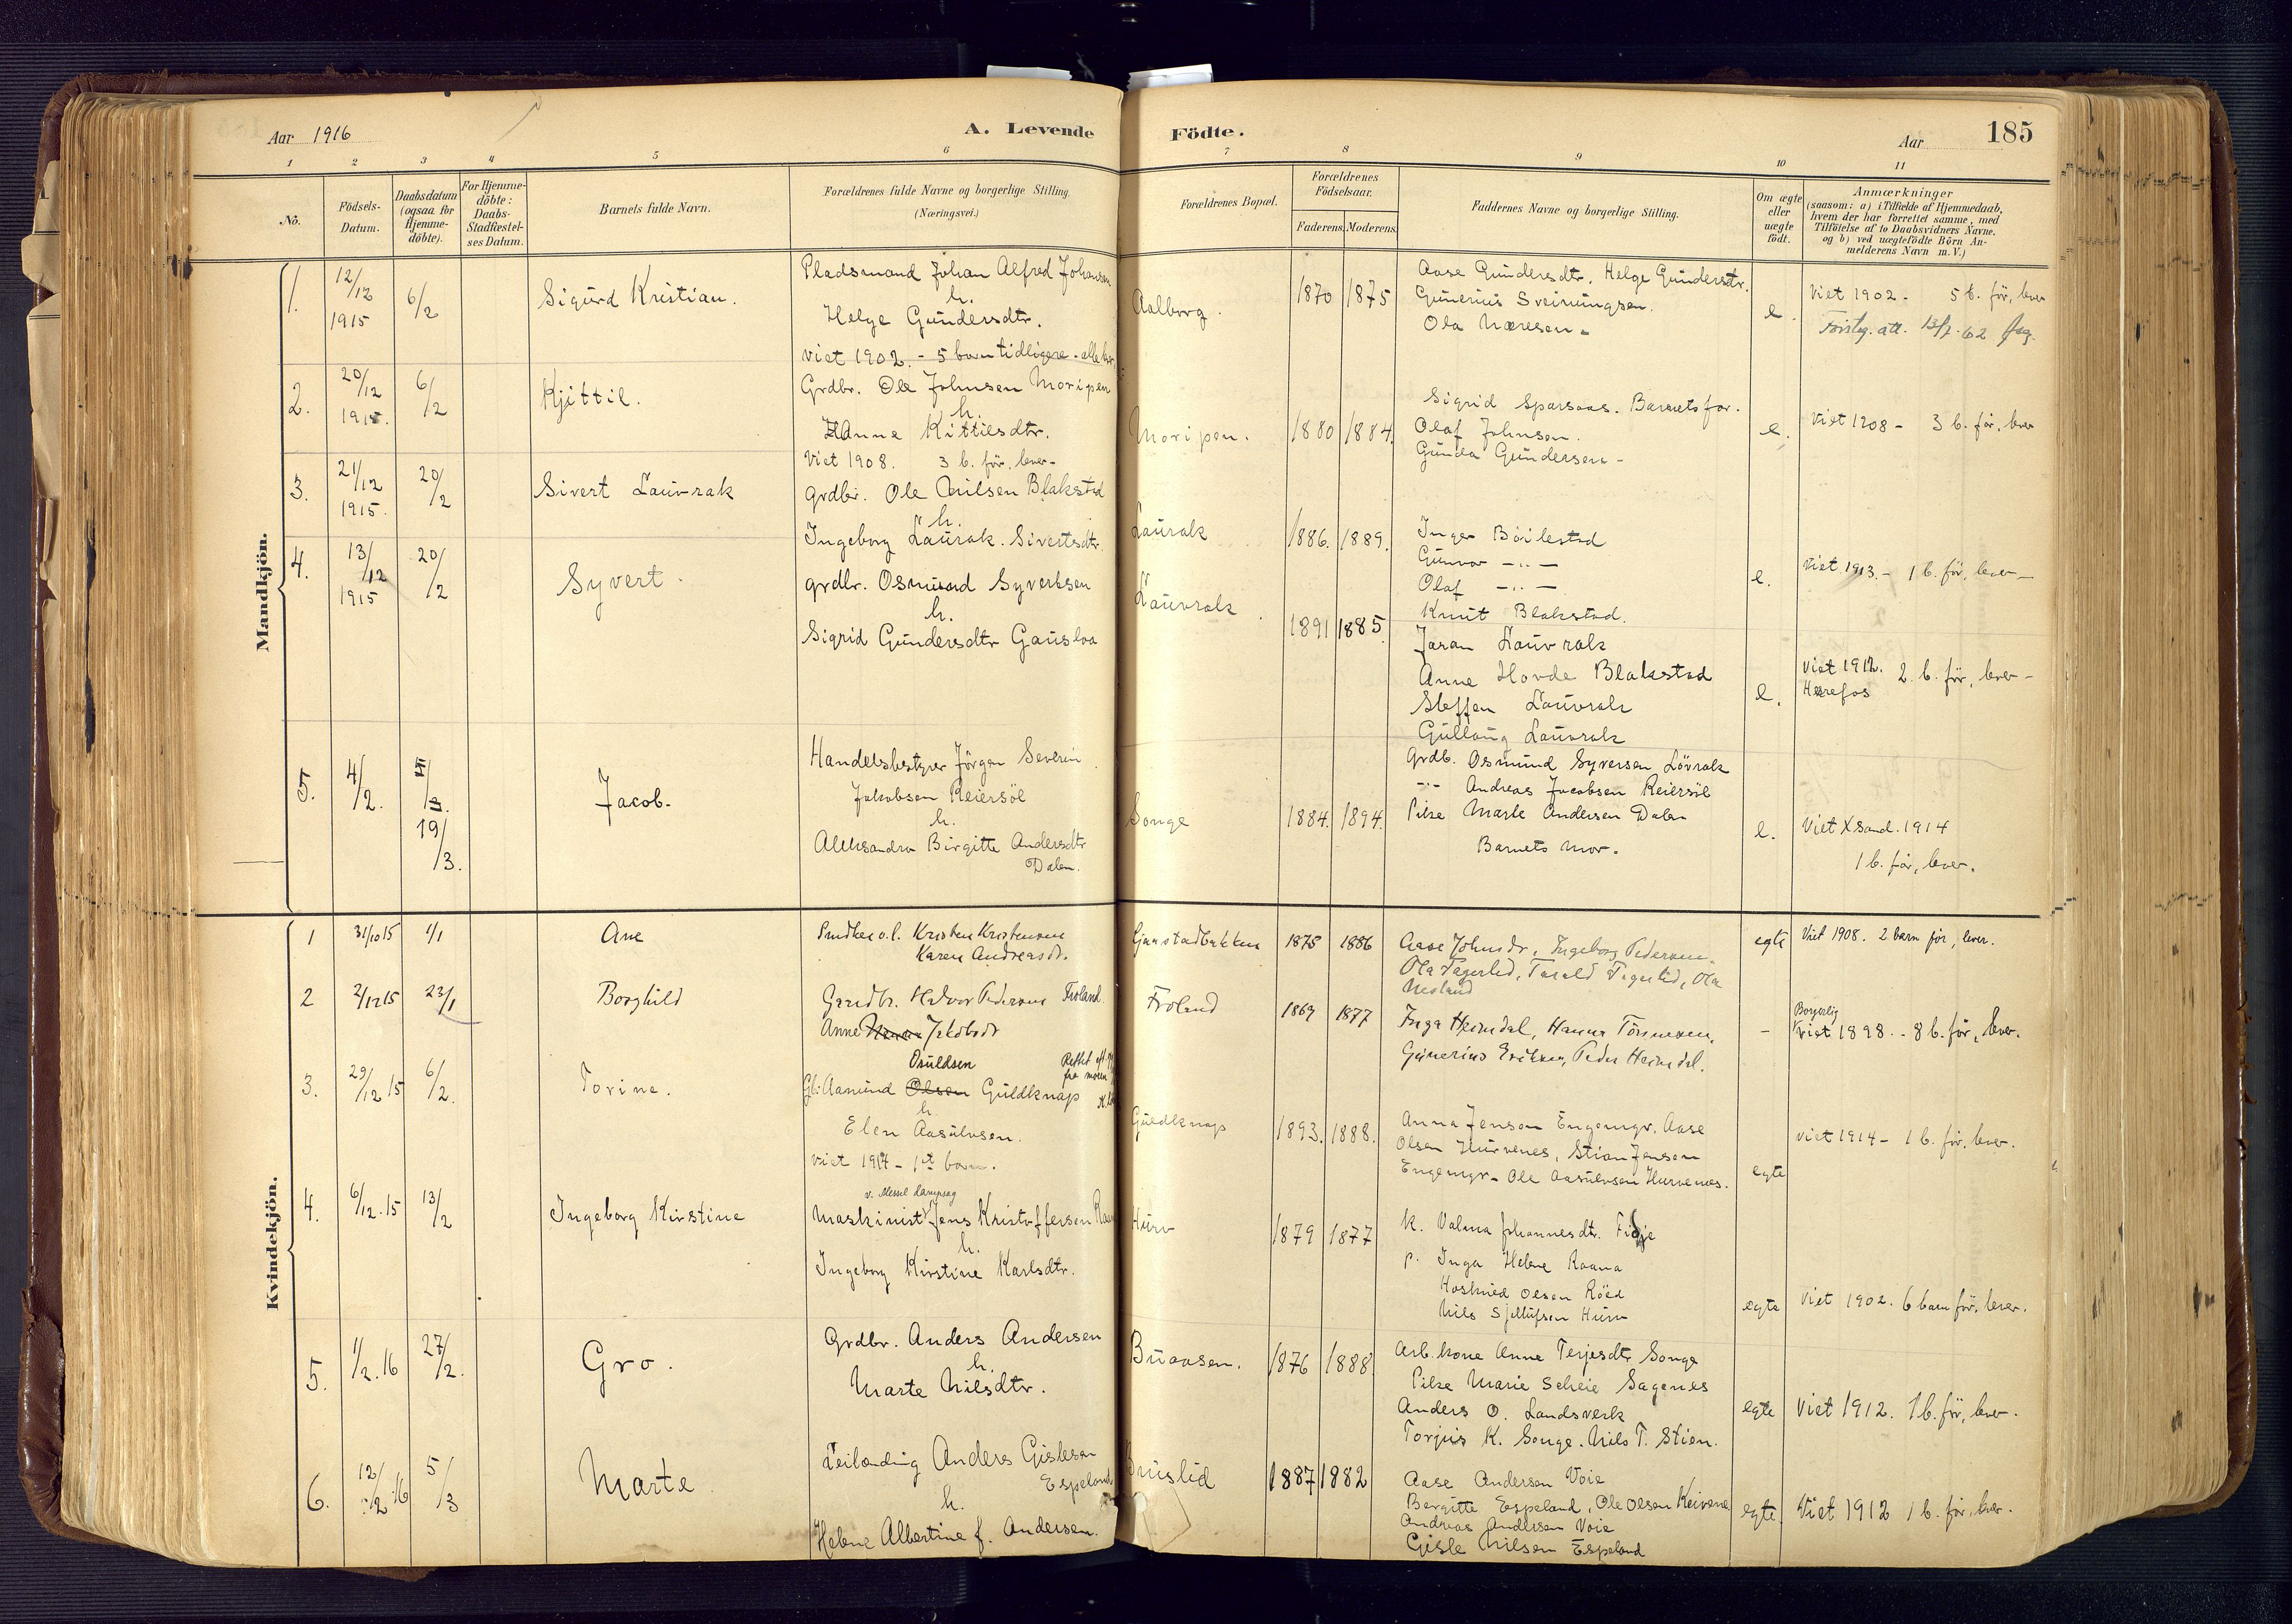 Aar 1916
A. Levende
Födte.
Aar
185
1 2 3 4 5 6 7 8 9 10 11
No.
Födsels-Datum.
Daabsdatum (ogsaa for Hjemmedöbte).
For Hjemmedöbte: Daabs-Stadfæstelses Datum.
Barnets fulde Navn.
Forældrenes fulde Navne og borgerlige Stilling. (Næringsvei.)
Forældrenes Bopæl.
Forældrenes Födselsaar.
Faderens. Moderens.
Faddernes Navne og borgerlige Stilling.
Om ægte eller uægte födt.
Anmærkninger (saasom: a) i Tilfælde af Hjemmedaab, hvem der har forrettet samme, med Tilföielse af to Daabsvidners Navne. og b) ved uægtefödte Börn Anmelderens Navn m. V.)
Mandkjön.
1. 12/12 1915 6/2 Sigurd Kristian.
Pladsmand Johan Alfred Johansen
h.
Helge Gundersdtr.
viet 1902. - 5 barn tidligere - alle lever
Aalborg. 1870 1875
Aase Gundersdtr. Helge Gundersdtr.
Gunerius Sveinungsen.
Ola
e.
Viet 1902 - 5 b. för, lever
2. 20/12 1915. 6/2 Kjittil.
Grdbr. Ole Johnsen Moripen
h.
Hanne Kittilsdtr.
Viet 1908. 3 b. för, lever-
Moripen. 1880 1884.
Sigrid Sparsaas. Barnets far.
Olaf Johnsen.
Gunda Gundersen -
e.
Viet 1908 - 3 b. för, lever
3. 21/12 1915. 20/2 Sivert Lauvrak
grdbr. Ole Nilsen Blakstad
h.
Ingeborg Laurak. Sivertsdtr.
Laurak 1886. 1889.
Inger Böilestad
Gunvor -"-
Olaf -"-
Knut Blakstad.
e.
Viet 1913. - 1 b. för, lever -
4. 13/12 1915 20/2 Syvert.
grdbr. Osmund Syvertsen
h.
Sigrid Gundersdtr Gauslaa
Lauvrak 1891 1885.
Lauvrak
Anne Hovde Blakstad
Steffen Lauvrak
Gullaug Lauvrak
e.
Viet 1912. 2 b. för, lever -
Herefos
5. 4/2. 19/3. Jacob.
Handelsbestyrer Jörgen Severin
Jakobsen Reiersöl
h.
Aleksandra Birgitte Andersdtr
Dalen.
Songe 1884. 1894.
grdb. Osmund Syversen Lövrak
-"- Andreas Jacobsen Reiersöl
Pike Marte Andersen Dalen
Barnets mor.
e.
Viet Xsand. 1914
1 b. för, lever.
Kvindekjön.
1 31/10 15 1/1 Ane
Kristen Kristensen
Karen Andreasdr.
1875 1886
Aase Johnsdr, Ingeborg Pedersen,
egte Viet 1908. 2 barn för, lever.
2 2/12 15 23/1 Borghild
Gaardbr. Halvor Pedersen Froland
Anne Jakobsdr
Froland 1869 1877
Inga Heimdal, Hanna Tönnesen,
Gunerius Eriksen, Peder Heimdal.
-
Borgerlig
Viet 1898. - 8 b. för, lever.
3. 29/12 15 6/2. Torine.
Osuldsen
Gb. Aamund Olsen Guldknap
h.
Elen Aasulvsen.
Viet 1914 - 1ste barn.
Guldknap 1893. 1888.
Anna Jensen Engemyr, Aase
Olsen Hurvenes, Stian Jensen
Engemyr - Ole Aasulvsen Hurvenes.
egte
Viet 1914 - 1 b. för, lever.
4. 6/12. 15 13/2 Ingeborg Kirstine
v. Messel dampsag
Maskinist Jens Kristoffersen
h.
Ingeborg Kirstine Karlsdtr.
Hurv 1879 1877
k. Valma Johannesdtr.
p. Inga Helene Raana
Olsen Röed
Nils Hurv
egte Viet 1902. 6 barn för, lever.
5. 1/2. 16 27/2. Gro.
Grdbr. Anders Andersen
h.
Marte Nilsdtr.
Buaasen. 1876 1888
Arb. kone Anne Terjesdtr Songe
Pike Marie Scheie Sagenes
Anders O. Landsverk
Torjus K. Songe. Nils T. Stien.
egte Viet 1912. 1 b. för, lever.
6. 12/2 16 5/3 Marte.
Leilænding Anders Gislesen
Espeland
h.
Helene Albertine f. Andersen.
Buslid 1887 1882
Aase Andersen Voie
Bergitte Espeland, Ole Olsen
Andreas Andersen Voie
Gisle Nilsen Espeland
egte Viet 1912 1 b. för, lever.